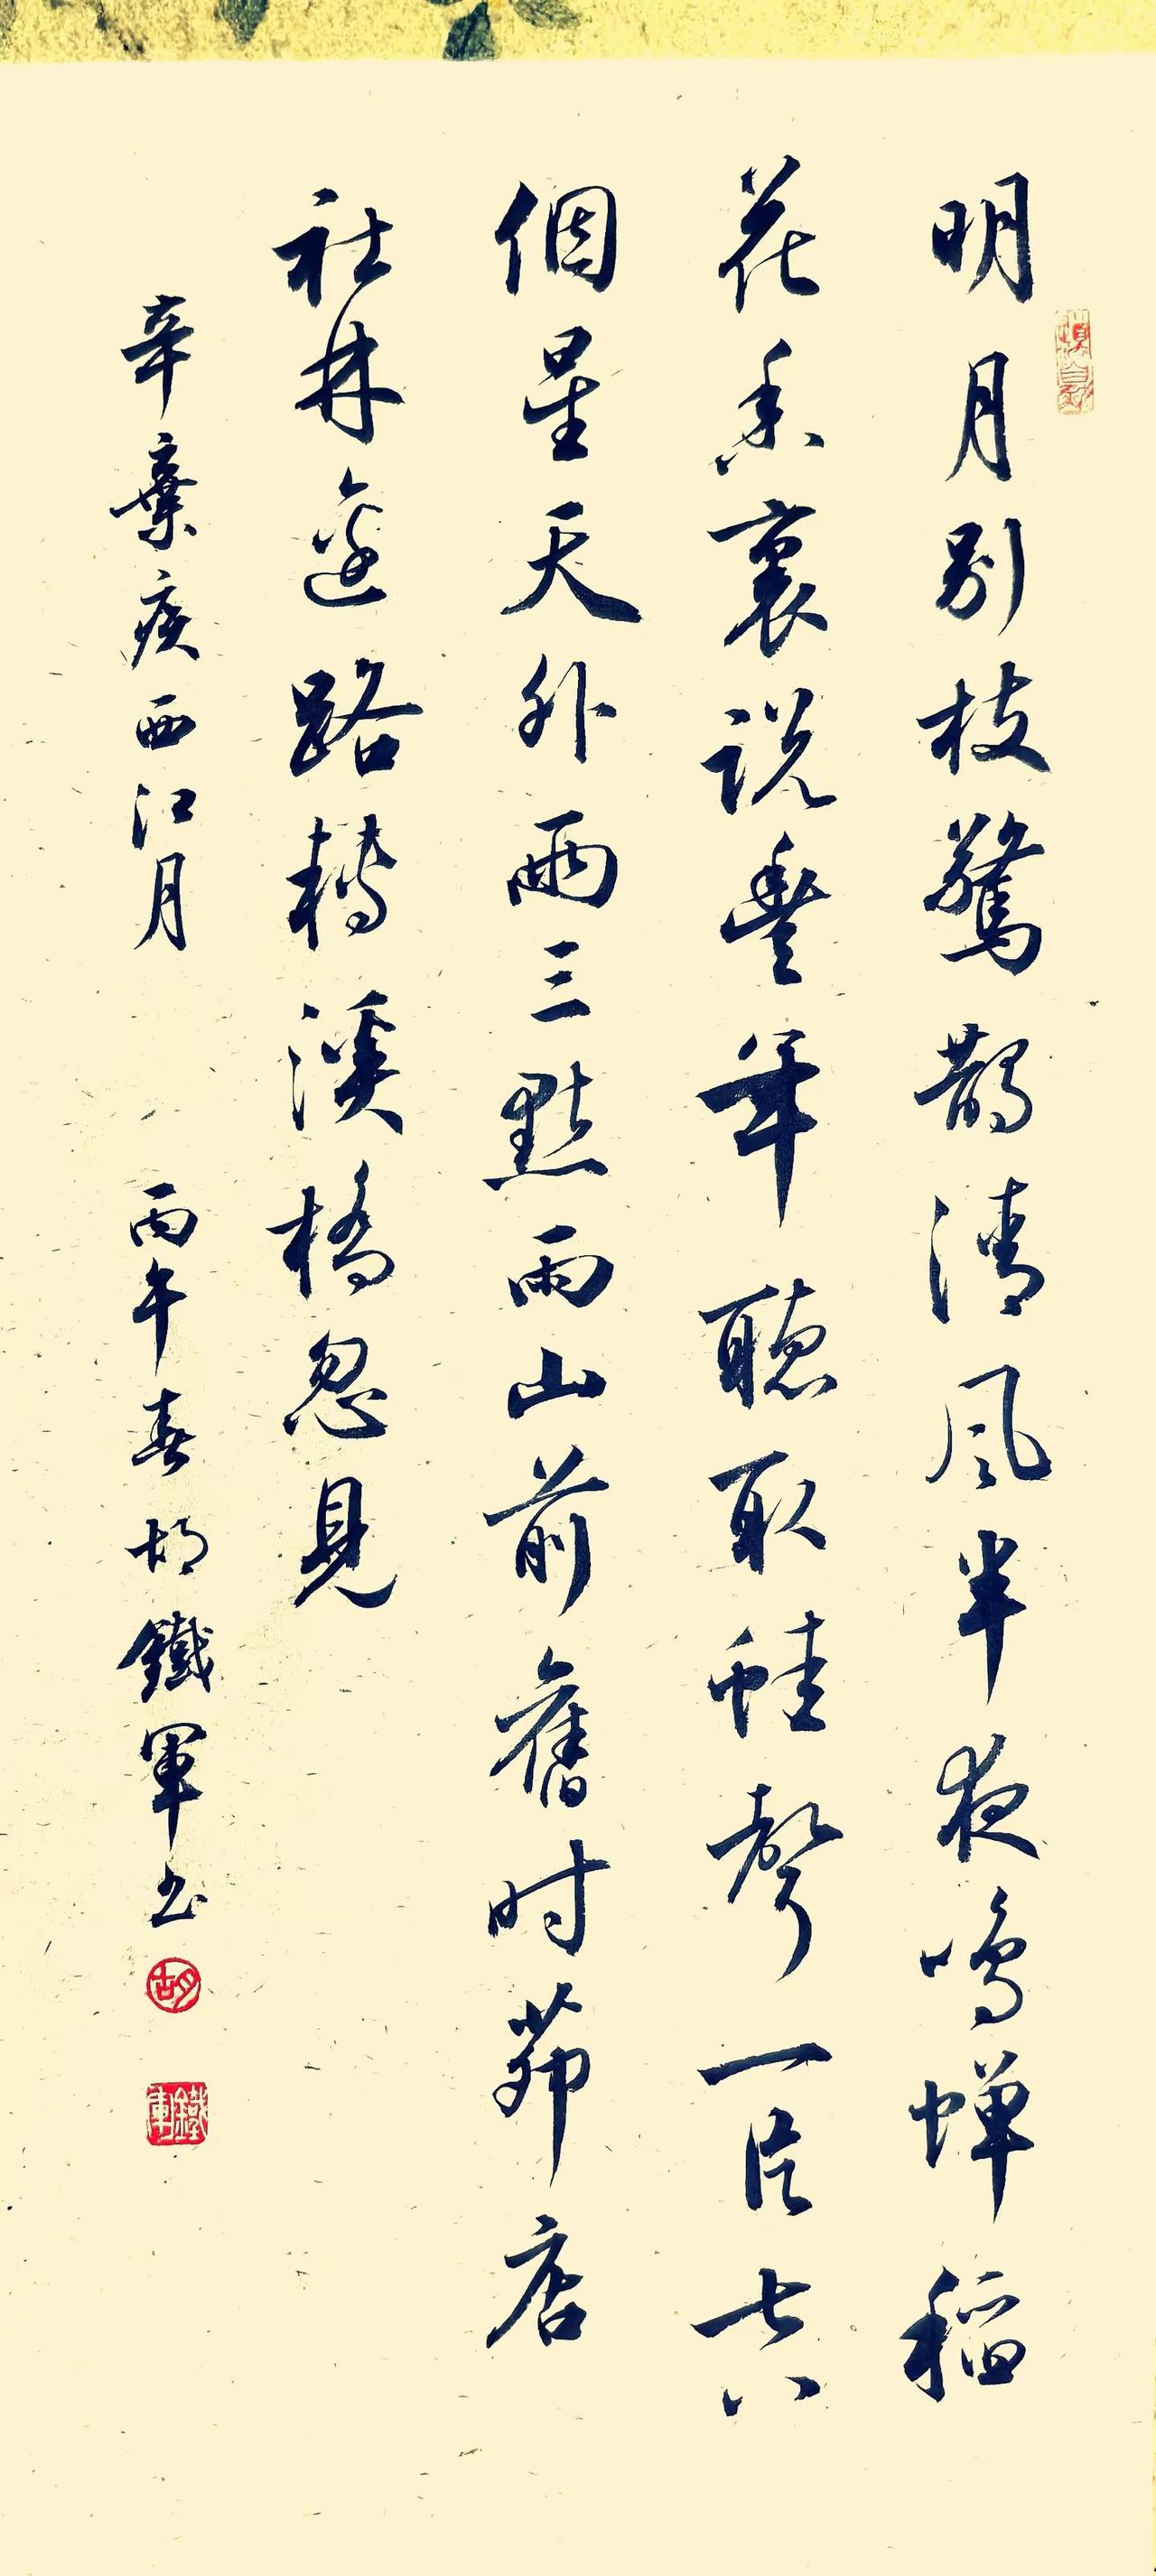 明月別枝驚鵲清風半夜鳴蟬稻
花香裏說豐年聽取蛙聲一片七八
個星天外兩三點雨山前舊时茆店
社林邊路轉溪橋忽見
辛棄疾西江月 丙午春胡鐵軍书
胡
鐵軍